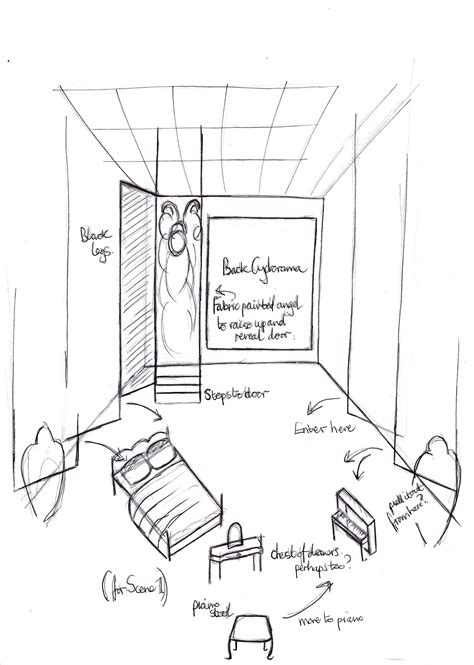 Black
legs.
Back Cyclorama
Fabric painted angel
to raise up and
reveal door.
Steps to door
Enter here
pull it out
from here?
chest of drawers
perhaps too?
(for Scene 1)
piano
stool
move to piano